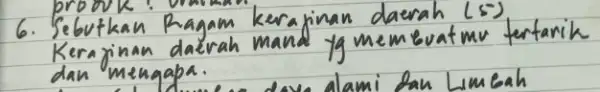 produk!
6. Sebutkan Ragam kerajinan daerah (5)
Kerajinan daerah mana yg membuatmu tertarik
dan mengapa.
daya alami dan Limbah